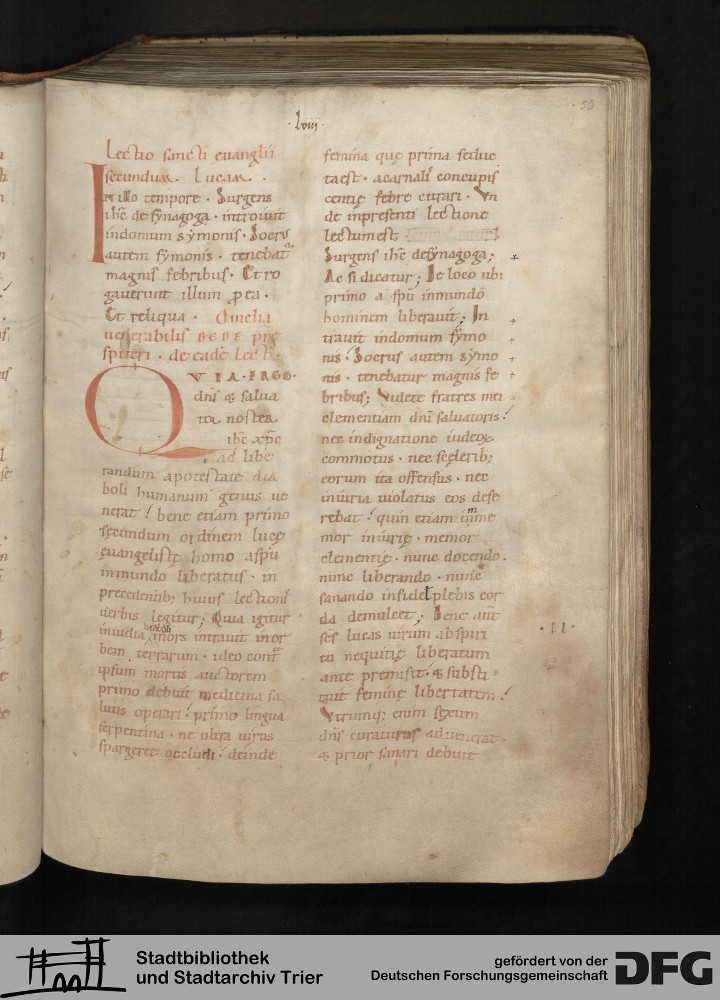 · lviii ·
59
Lectio sancti euanglii
secundum. Lucam.
In illo tempore · Surgens
ihc de synagoga · introiuit
indomum symonis · Socrus
autem symonis · tenebat
magnis febribus · Et ro
gauerunt illum p ea ·
Et reliqua · Omelia
uenerabilis BEDE pre
spiteri · de eadē Lect.
QVIA · ERGO ·
dn̄s & salua
tor noster
ihc xp̄c
ad libe
randum apotestate dia
boli humanum genus ue
nerat! bene etiam primo
secundum ordinem lucę
euangelistę homo aspū
inmundo liberatus · in
precedentib; huius lectionis
uerbis legitur; Quia igitur
inuidia diaboli mors intrauit inor
bem terrarum · ideo contra
ipsum mortis auctorem
primo debuit medicina sa
lutis operari! primo lingua
serpentina · ne ultra uirus
spargeret occludi · deinde
femina quę prima seduc
ta est · acarnali concupis
centię febre curari · Vn
de inpresenti lectione
lectum est;
Surgens ihc desynagoga;
Ac si dicatur; De loco ubi
primo a spū inmundo
hominem liberauit; In
trauit indomum symo
nis! Socrus autem symo
nis · tenebatur magnis fe
bribus; Videte fratres mei
clementiam dnī saluatoris!
nec indignatione iudeoꝝ
commotus · nec sceleribȝ
eorum ita offensus · nec
iniuria uiolatus eos dese
rebat! quin etiam inme
mor iniurię · memor
clementię · nunc docendo ·
nunc liberando · nunc
sanando infidel plebis cor
da demulcet; Bene aūt
scs lucas uirum abspiri
tu nequitię liberatum
ante premisit · & substi
tuit feminę libertatem!
Vtrumq; enim sexum
dn̄s curaturus aduenerat ·
& prior sanari debuit
· II ·
Stadtbibliothek
und Stadtarchiv Trier
gefördert von der
Deutschen Forschungsgemeinschaft
DFG